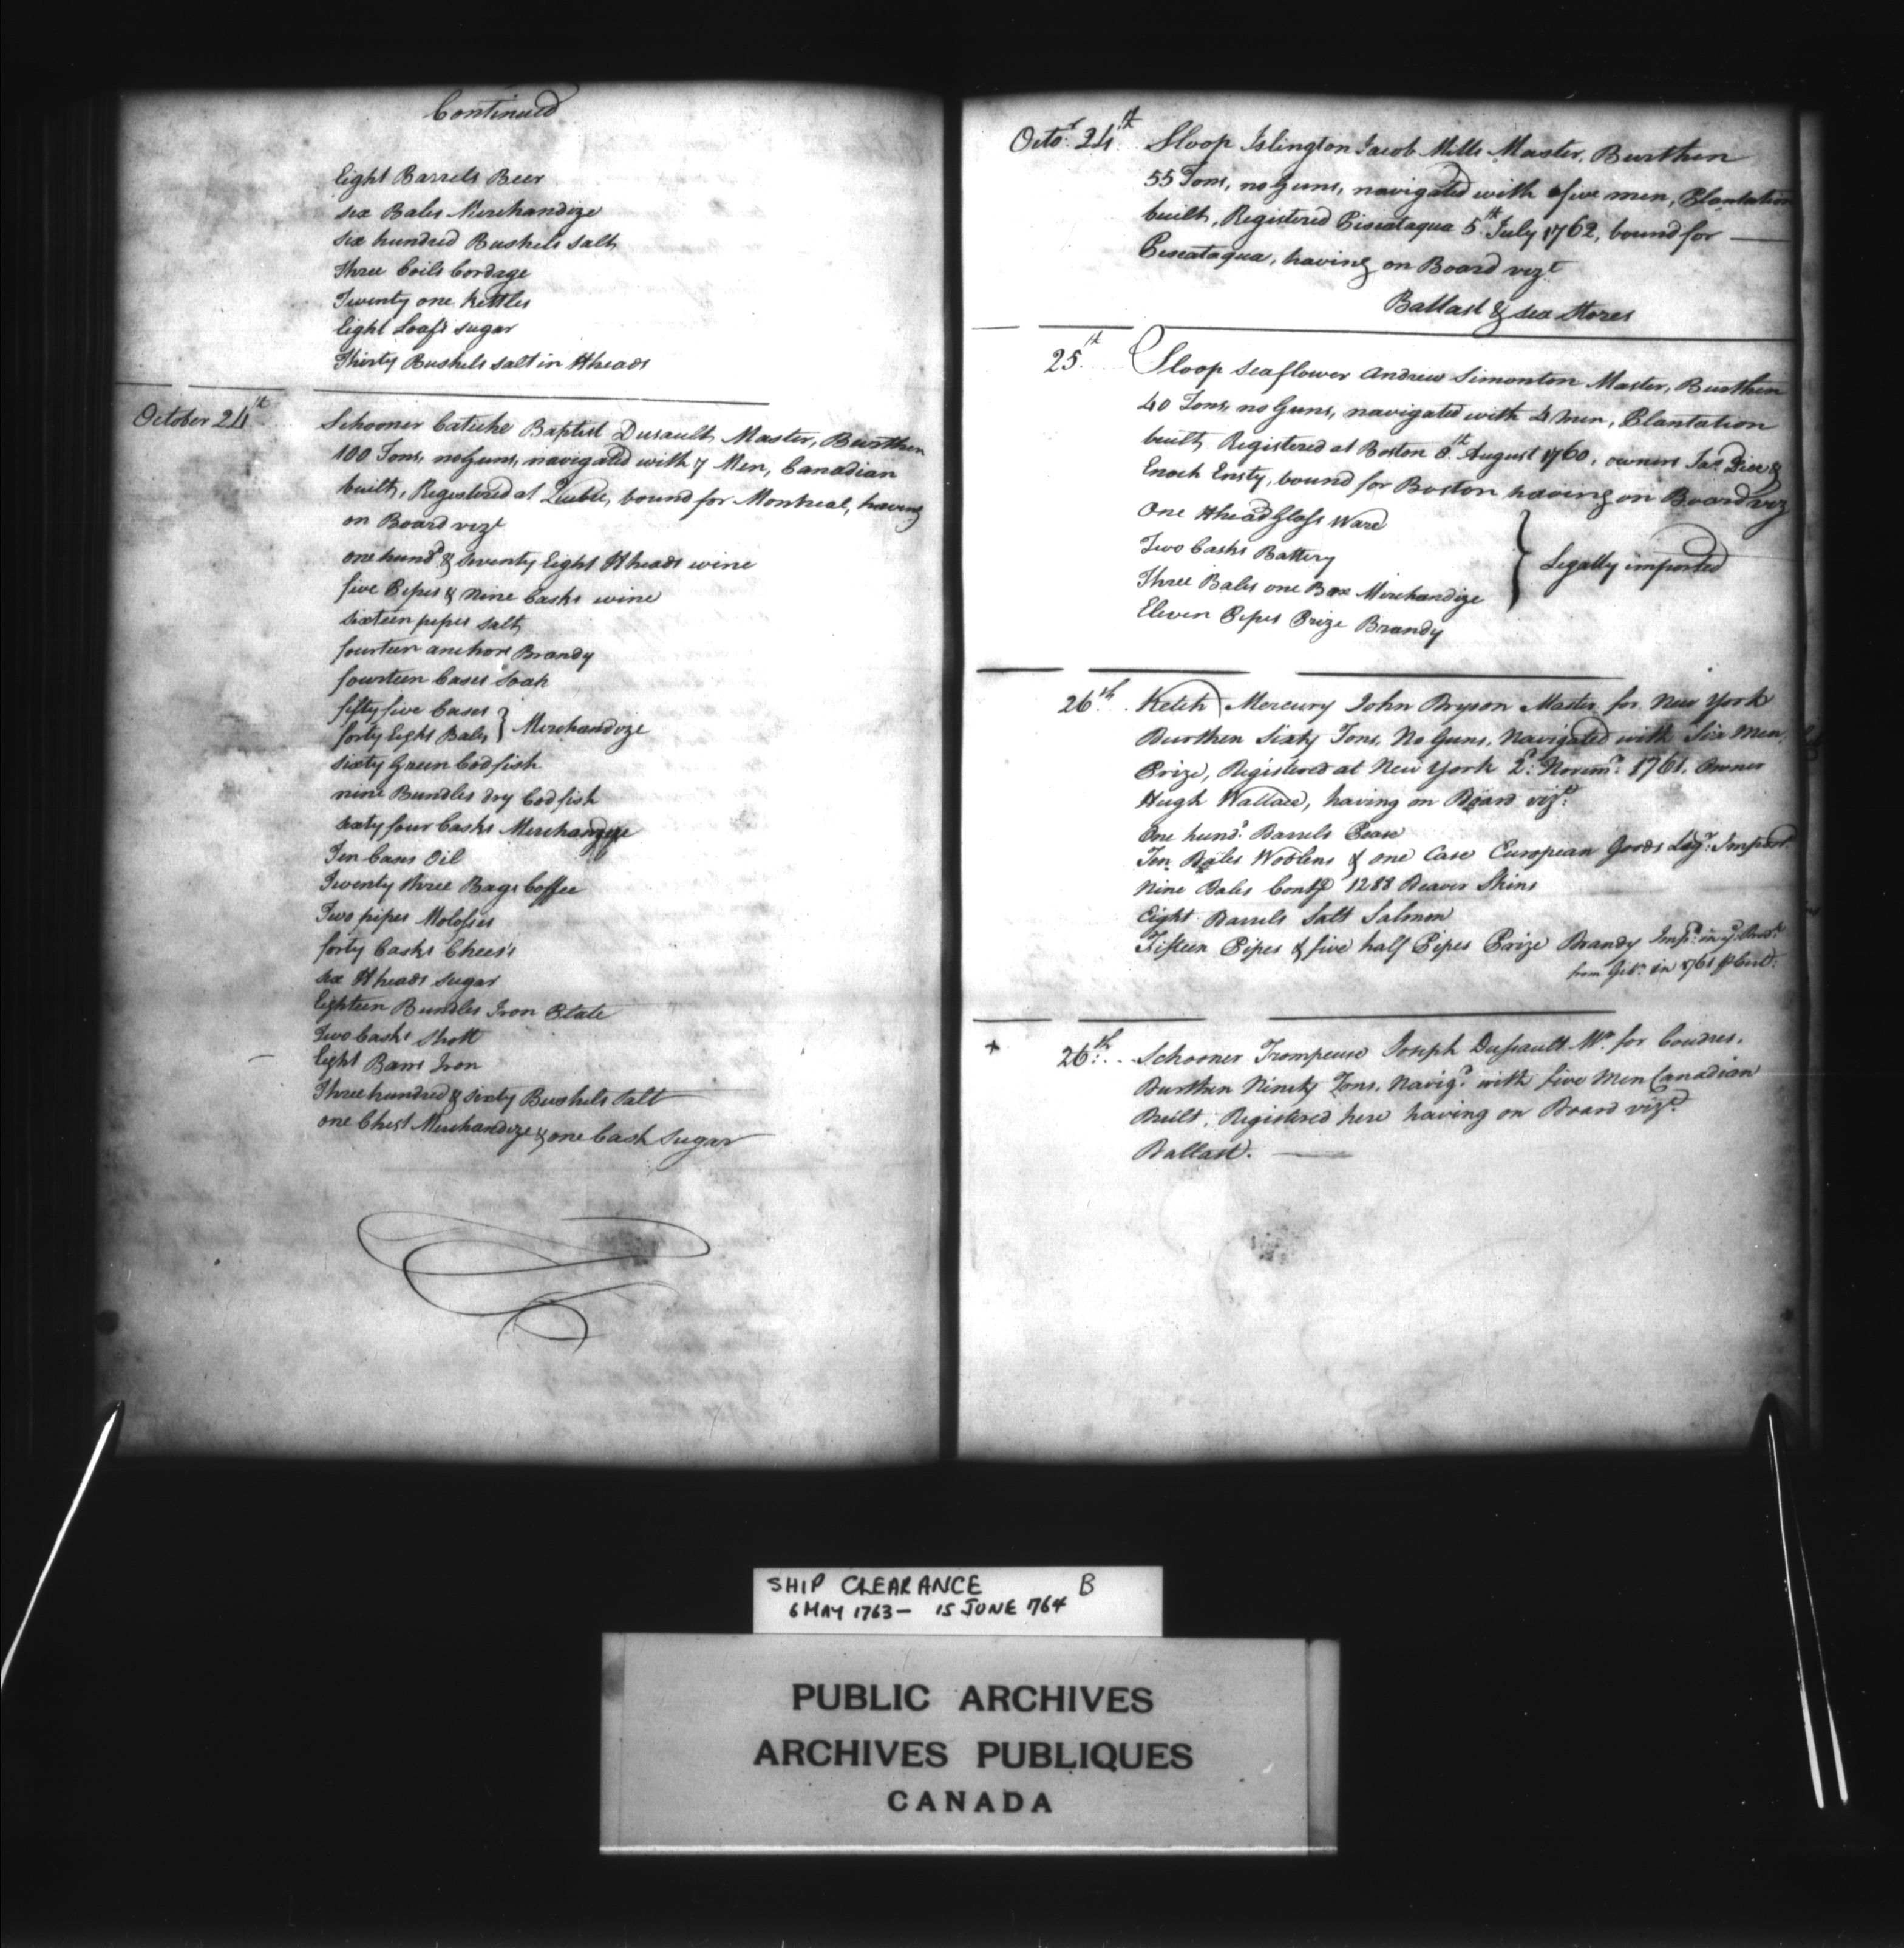 Continued
Eight Barrels Beer
six Bales Merchandize
six hundred Bushels salt
Three Coils Cordage
Twenty one Kettles
Eight Loafs sugar
Thirty Bushels salt in Hheads
October 24th Schooner Catiche Baptist Dusault Master, Burthen
100 Tons, no Guns, navigated with 7 Men, Canadian
built, Registered at Quebec, bound for Montreal, having
on Board vizt
one hund'd & seventy Eight Hheads wine
five Pipes & Nine Casks wine
sixteen pipes salt
fourteen anchors Brandy
fourteen Cases Soap
fifty five Cases
forty Eight Bales } Merchandize
sixty Green Codfish
nine Bundles dry Codfish
sixty four Casks Merchandize
Ten Cases Oil
Twenty three Bags Coffee
Two pipes Molosses
forty Casks Chees's
six Hheads sugar
Eighteen Bundles Iron Plate
Two Casks Shott
Eight Barrs Iron
Three hundred & sixty Bushels Salt
one Chest Merchandize & one Cask Sugar
Octor. 24th Sloop Islington Jacob Mills Master, Burthen
55 Tons, no Guns, navigated with five men, Plantation
built, Registered Piscataqua 5th July 1762, bound for
Piscataqua, having on Board vizt
Ballast & sea Stores
25th Sloop Seaflower Andrew Simonton Master, Burthen
40 Tons, no Guns, navigated with 4 Men, Plantation
built, Registered at Boston 8th August 1760, owners Jas. &
Enoch bound for Boston having on Board viz
One Hhead Glass Ware
Two Casks Battery
Three Bales one Box Merchandize } Legally imported
Eleven Pipes Prize Brandy
26th. Ketch Mercury John Bryson Master for New York
Burthen Sixty Tons, No Guns, Navigated with Six Men,
Prize, Registered at New York 2d. Novemr. 1761, Owner
Hugh Wallace, having on Board vizt.
One hund'd. Barrels Pease
Ten Bales Woolens & one Case European Goods Legy. Import
Nine Bales Contg 1288 Beaver Skins
Eight Barrels Salt Salmon
Fifteen Pipes & five half Pipes Prize Brandy
from in 1761
+ 26th... Schooner Trompeuse Joseph Dussault Mr. for Coudres.
Burthen Ninety Tons, Navigd. with five Men Canadian
Built, Registered here having on Board vizt.
Ballast.
SHIP CLEARANCE B
6 MAY 1763 - 15 JUNE 764
PUBLIC ARCHIVES
ARCHIVES PUBLIQUES
CANADA